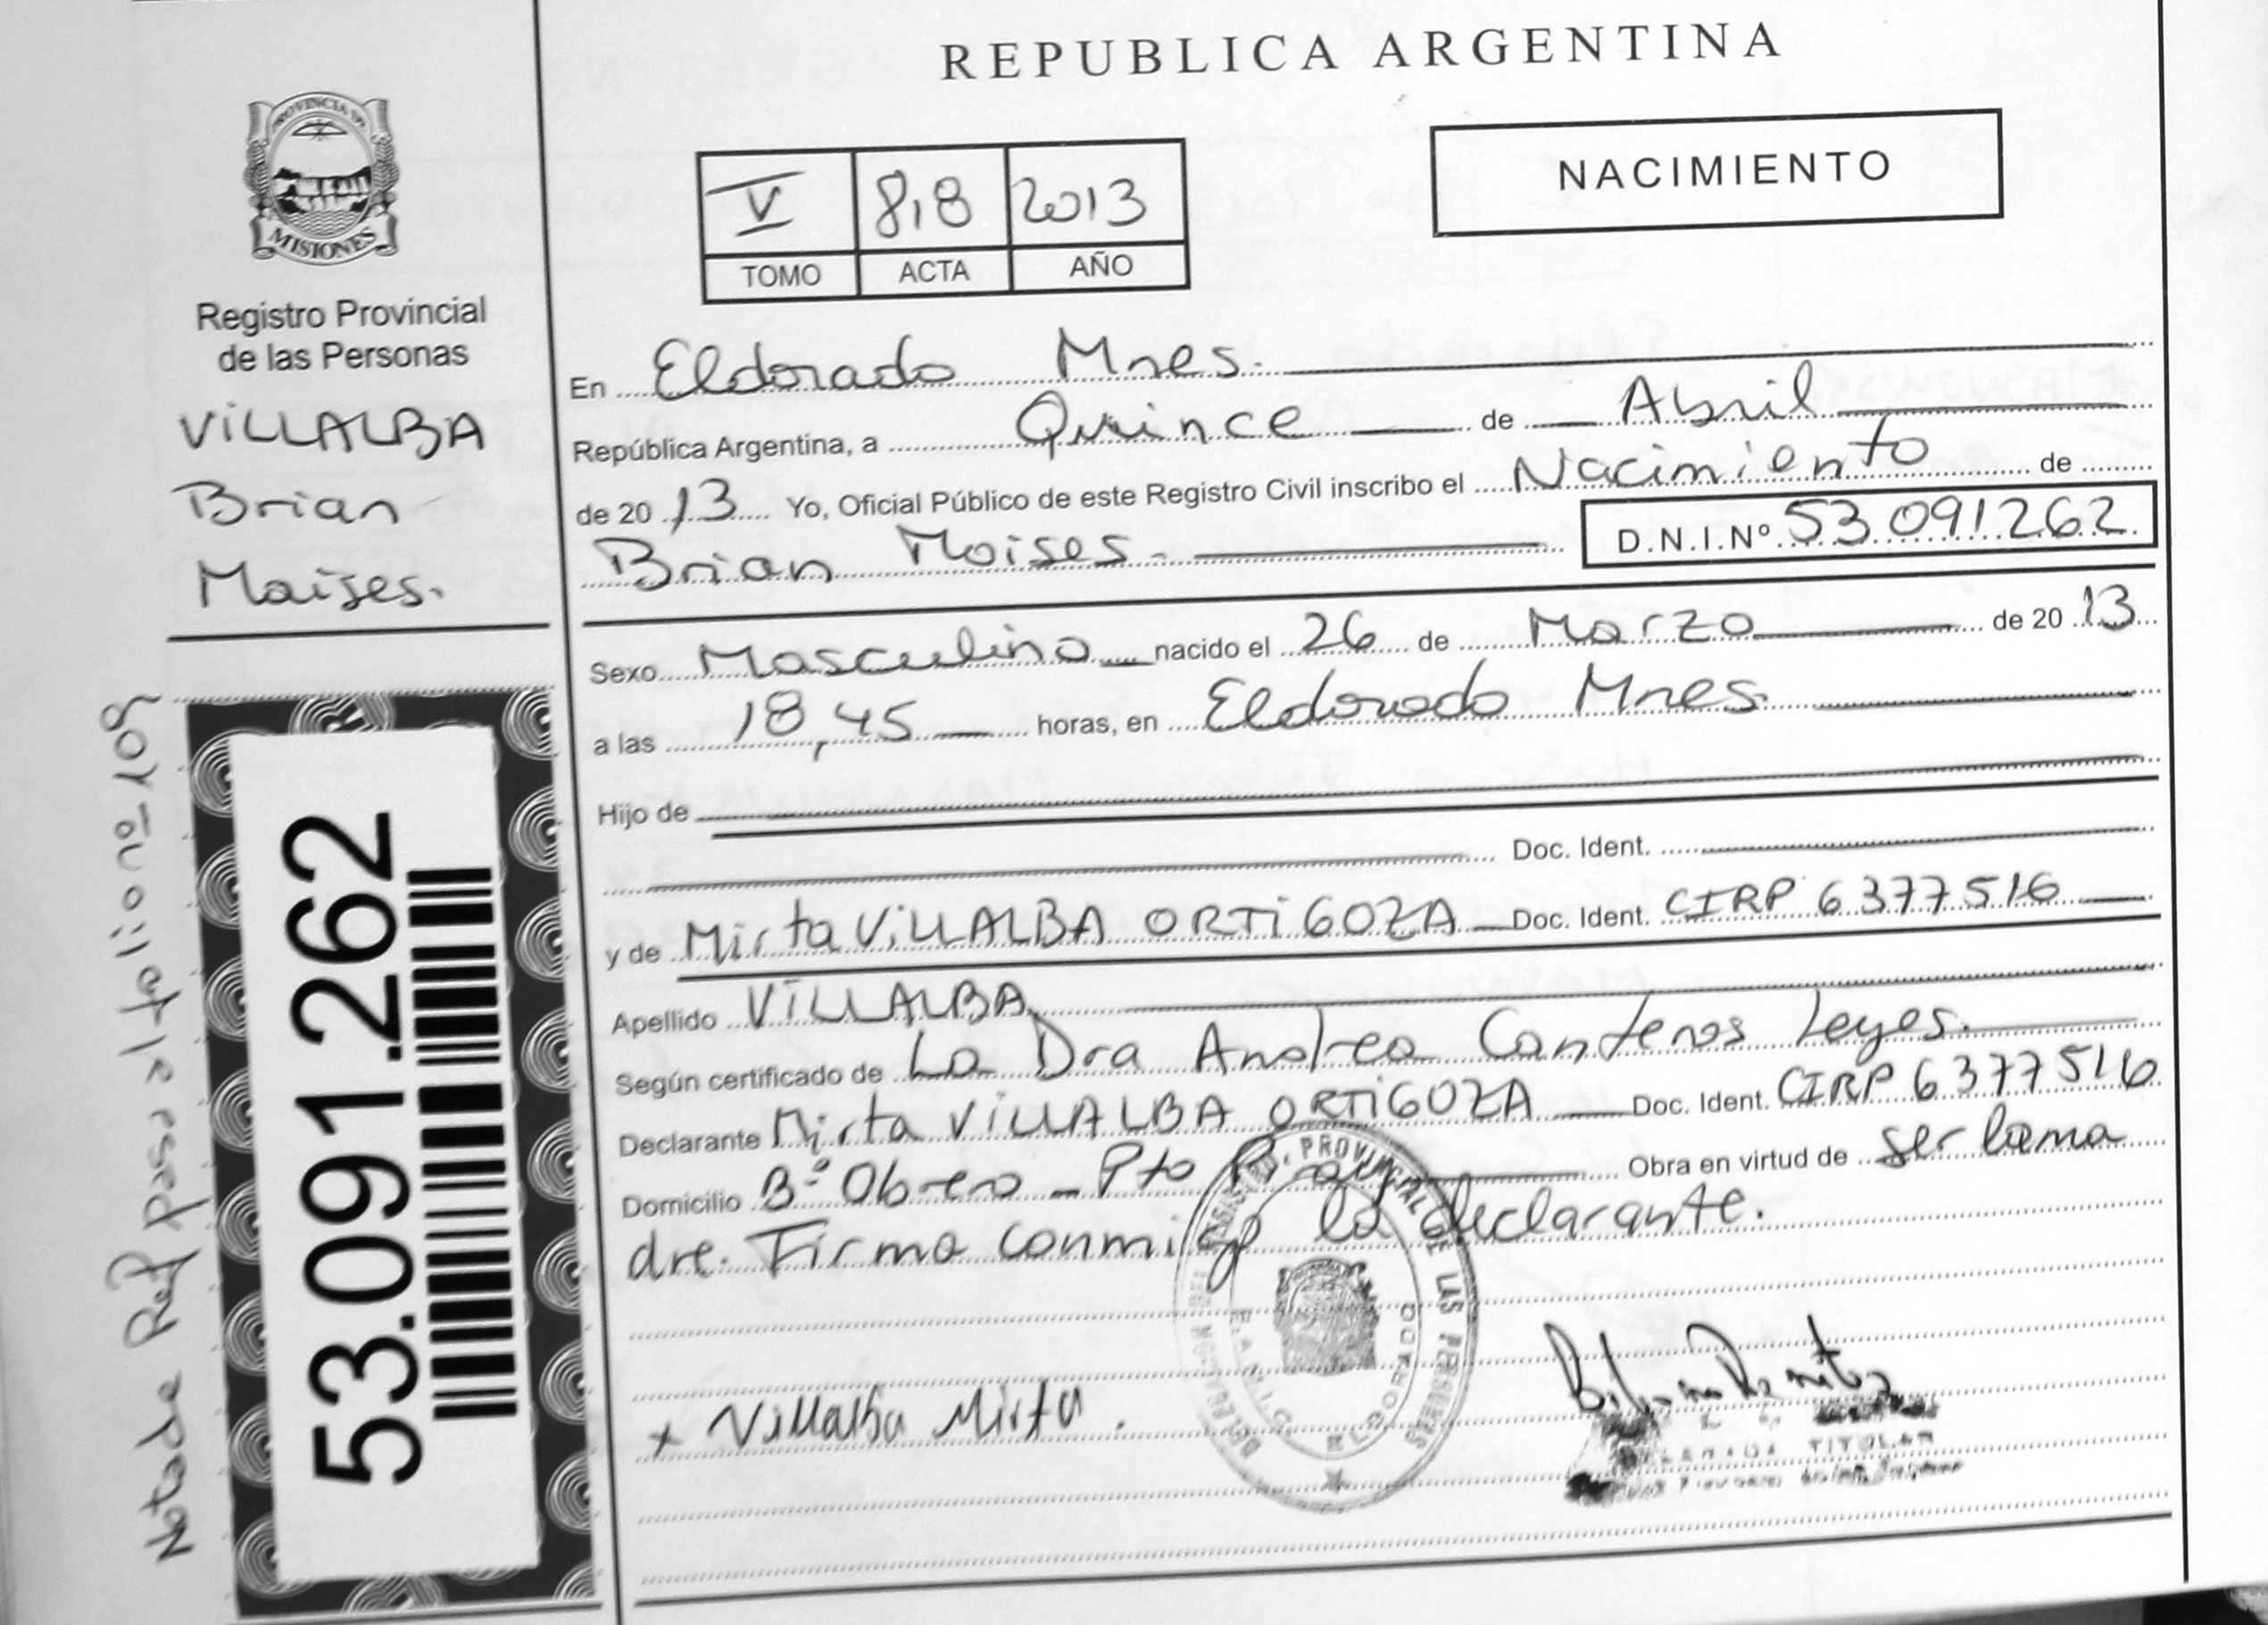 REPUBLICA ARGENTINA
PROVINCIA DE
MISIONES
Registro Provincial
de las Personas
VILLALBA
Brian
Moises.
Nota de Ref pasa al folio nº 109
53.091.262
NACIMIENTO
V 818 2013
TOMO ACTA AÑO
En Eldorado Mnes.
República Argentina, a Quince de Abril
de 2013 Yo, Oficial Público de este Registro Civil inscribo el Nacimiento de
Brian Moises. D.N.I.Nº 53.091.262.
Sexo Masculino nacido el 26 de Marzo de 2013
a las 18,45 horas, en Eldorado Mnes.
Hijo de
Doc. Ident.
y de Mirta VILLALBA ORTIGOZA Doc. Ident. CIRP 6377516
Apellido VILLALBA
Según certificado de La Dra Andrea Canteros Leyes.
Declarante Mirta VILLALBA ORTIGOZA Doc. Ident. CIRP 6377516
Domicilio Bº Obrero - Pto Piray Obra en virtud de ser la ma
dre. Firma conmigo la declarante.
DELEGACION DEL REGISTRO PROVINCIAL DE LAS PERSONAS
ELDORADO
x Villalba Mirta.
TITULAR